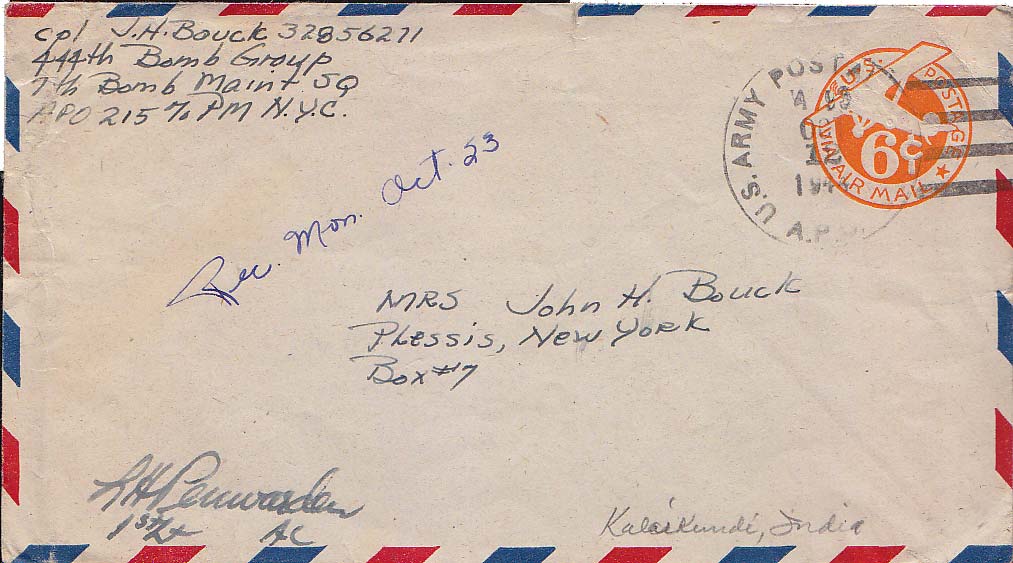 cpl J.H. Bouck 32856271
444th Bomb Group
7th Bomb Maint SQ
APO 215 % PM N.Y.C.
U.S. ARMY POSTAL
A.P.O.
194
U.S. POSTAGE
VIA AIR MAIL
6¢
Rec. Mon. Oct. 23
MRS John H. Bouck
Plessis, New York
Box #7
Penwarden
1st Lt AC
Kalaikundi, India